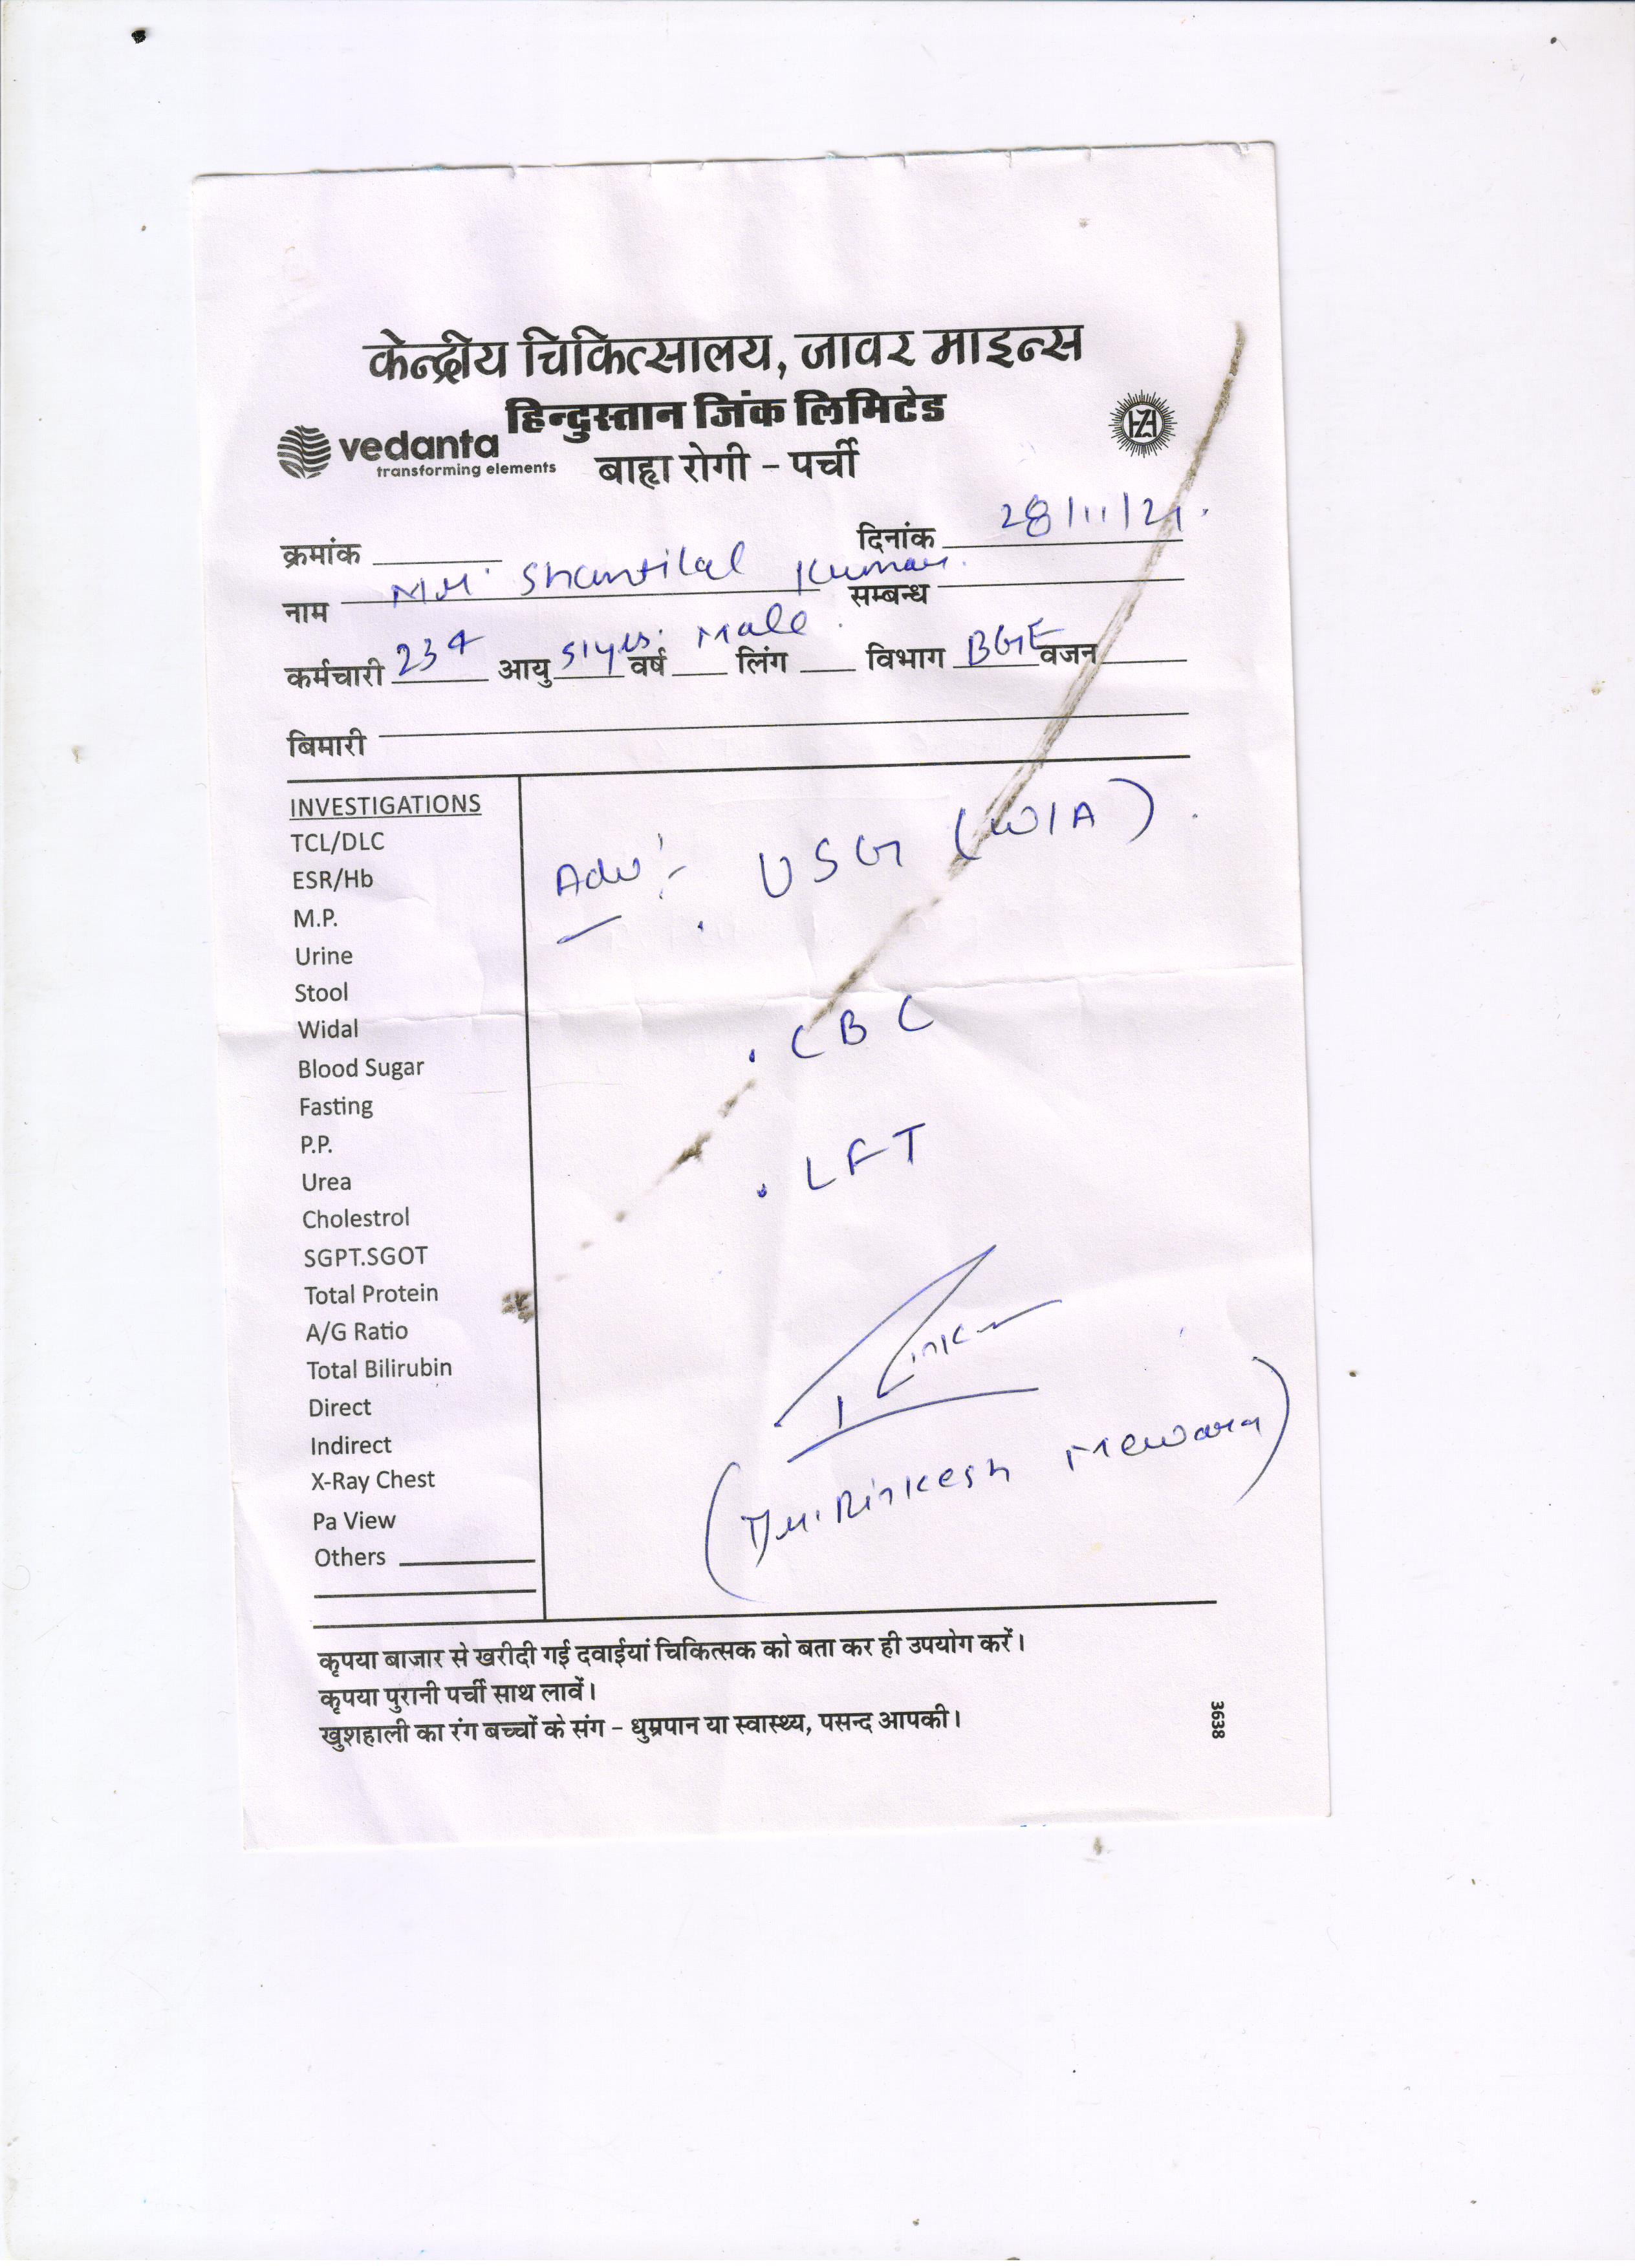 केन्द्रीय चिकित्सालय, जावर माइन्स
हिन्दुस्तान जिंक लिमिटेड
vedanta
transforming elements
HZL
बाह्य रोगी - पर्ची
क्रमांक दिनांक 28/11/21.
नाम Mr. Shantilal Kumar. सम्बन्ध
कर्मचारी 234 आयु 51yrs. वर्ष Male. लिंग विभाग BGE वजन
बिमारी
INVESTIGATIONS
TCL/DLC
ESR/Hb
M.P.
Urine
Stool
Widal
Blood Sugar
Fasting
P.P.
Urea
Cholestrol
SGPT.SGOT
Total Protein
A/G Ratio
Total Bilirubin
Direct
Indirect
X-Ray Chest
Pa View
Others
Adv:- . USG (W/A).
. CBC
. LFT
(Dr. Rinkesh Mewara)
कृपया बाजार से खरीदी गई दवाईयां चिकित्सक को बता कर ही उपयोग करें।
कृपया पुरानी पर्ची साथ लावें।
खुशहाली का रंग बच्चों के संग - धुम्रपान या स्वास्थ्य, पसन्द आपकी।
3638